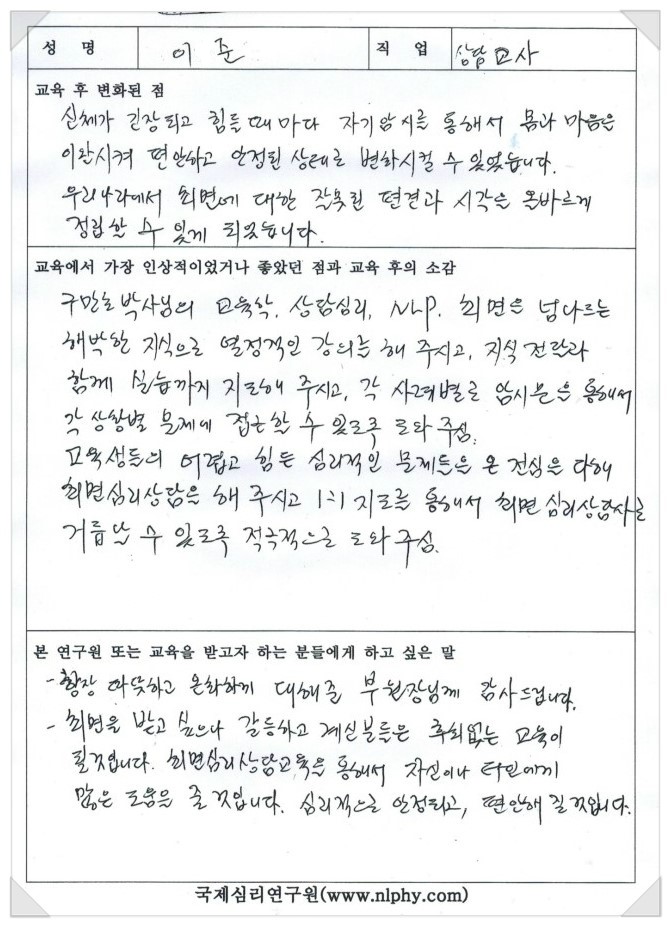 성 명 이 준 직 업 상담교사
교육 후 변화된 점
신체가 긴장되고 힘들 때마다 자기암시를 통해서 몸과 마음을
이완시켜 편안하고 안정된 상태로 변화시킬 수 있었습니다.
우리나라에서 최면에 대한 잘못된 편견과 시각을 올바르게
정립할 수 있게 되었습니다.
교육에서 가장 인상적이었거나 좋았던 점과 교육 후의 소감
구만호박사님의 교육학, 상담심리, NLP, 최면을 넘나드는
해박한 지식으로 열정적인 강의를 해 주시고, 지식 전달과
함께 실습까지 지도해 주시고, 각 사례별로 암시문을 통해서
각 상황별 문제에 접근할 수 있도록 도와 주심.
교육생들의 어렵고 힘든 심리적인 문제들을 온 전심을 다해
최면심리상담을 해 주시고 1:1 지도를 통해서 최면심리상담사로
거듭날 수 있도록 적극적으로 도와 주심.
본 연구원 또는 교육을 받고자 하는 분들에게 하고 싶은 말
- 항장 따뜻하고 온화하게 대해준 부원장님께 감사드립니다.
- 최면을 받고 싶으나 갈등하고 계신분들은 후회없는 교육이
될것입니다. 최면심리상담교육을 통해서 자신이나 타인에게
많은 도움을 줄 것입니다. 심리적으로 안정되고, 편안해 질 것입니다.
국제심리연구원(www.nlphy.com)